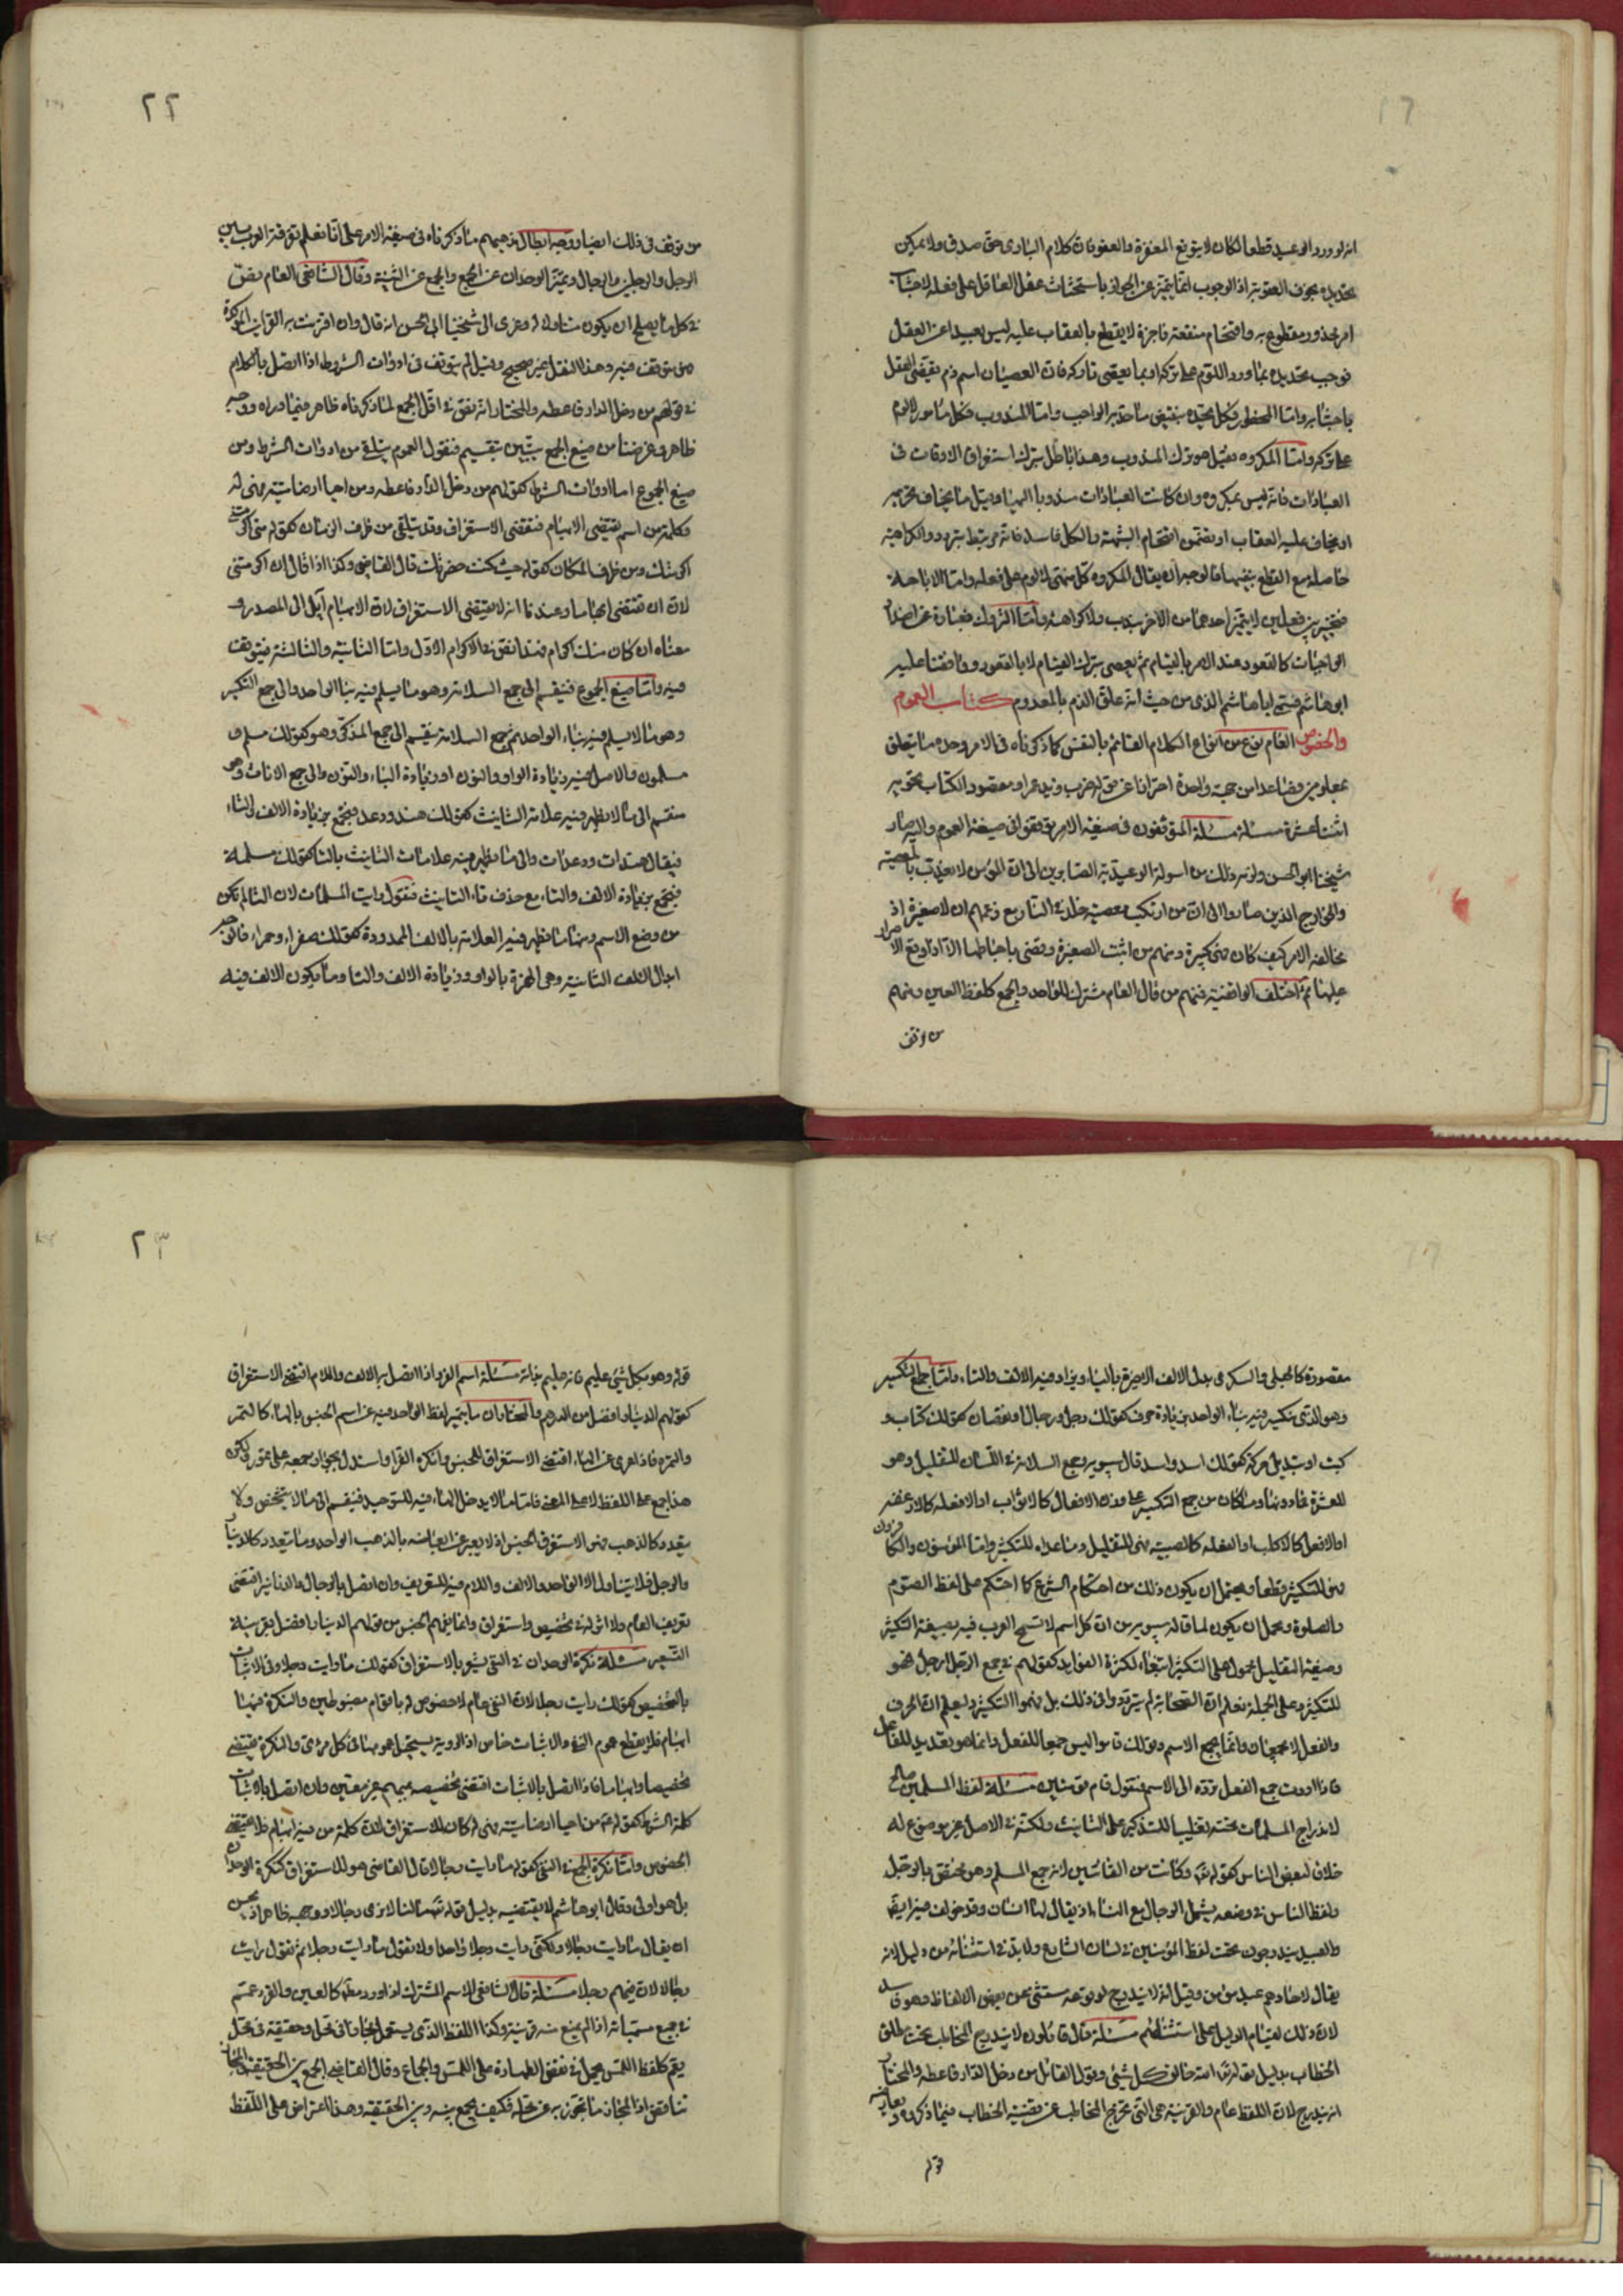 انه لو ورد الوعيد قطعا لكان لا يتوقع المغفرة والعفو فان كلام البارى حق صدق ولا يمكن
تحديده بخوف العقوبة اذ الوجوب انما يتميز عن الجواز باستحثاث عقل العاقل على فعله لاجتناب
امر محذور مقطوع به واقتحام منفعة ناجزة لا يقطع بالعقاب عليه ليس بعيدا عن العقل
فوجب تحديده بما ورد اللوم على تركه او بما يعصى تاركه فان العصيان اسم ذم يقتضى العقل
باجتنابه واما المحظور فكل تحديده بنقيض ما حد به الواجب واما المندوب فكل مامور لا لوم
على تركه واما المكروه فقيل هو ترك المندوب وهذا باطل بترك استغراق الاوقات فى
العبادات فانه ليس بمكروه وان كانت العبادات مندوبا اليها وقيل ما يخاف تحريمه
او يخاف عليه العقاب او يتضمن اقتحام الشبهة والكل فاسد فانه مرتبط بتردد والكراهية
حاصلة مع القطع بنفيهما فالوجه ان يقال المكروه كل منهى لا لوم على فعله واما الاباحة
فتخيير بين فعلين لا يتميز احدهما من الاخر بندب ولا كراهة واما التروك فعبارة عن اضداد
الواجبات كالقعود عند الامر بالقيام ثم يعصى بترك القيام لا بالقعود ووافقنا عليه
ابو هاشم فسمى ابا هاشم الذمى من حيث انه علق الذم بالمعدوم كتاب العموم
والخصوص العام نوع من انواع الكلام القائم بالنفس كما ذكرناه فى الامر وحده ما يتعلق
بمعلومين فصاعدا من جهة واحدة احترازا عن قوله ضرب زيد عمرا ومقصود الكتاب يحويه
اثنتا عشرة مسئلة مسئلة المتوقفون فى صيغة الامر توقفوا فى صيغة العموم واليه صار
شيخنا ابو الحسن ولزمه ذلك من اسولة الوعيدية الصايرين الى ان المؤمن لا يعذب بالمعصية
والخوارج الذين صاروا الى ان من ارتكب معصية خلد فى النار مع زعمهم ان لا صغيرة اذ
مخالفة الامر كيف كان فهى كبيرة ومنهم من اثبت الصغيرة وقضى باحباطها الا اذا وقع الاصرار
عليها ثم اختلف الواقفية فمنهم من قال العام مشترك للواحد والجمع كلفظ العين ومنهم
من توقف
٢٢
من توقف فى ذلك ايضا ووجه ابطال مذهبهم ما ذكرناه فى صيغة الامر على انا نعلم تفرقة العرب بين
الرجل والرجلين والرجال وتميز الوحدان عن الجمع والجمع عن التثنية وقال الشافعى العام نص
فى كل ما يصلح ان يكون متناولا له وعزى الى شيخنا ابى الحسن انه قال وان اقترنت به القراين المؤكدة
فهو يتوقف فيه وهذا النقل غير صحيح وقيل لم يتوقف فى ادوات الشروط اذا اتصل بالكلام
فى قولهم من دخل الدار فاعطه والمختار انه نص فى اقل الجمع لما ذكرناه ظاهر فيما وراه ووجه
ظاهر وغرضنا من صيغ الجمع يتبين بتقسيم فنقول العموم يتلقى من ادوات الشرط ومن
صيغ الجموع اما ادوات الشرط كقولهم من دخل الدار فاعطه ومن احيا ارضا ميتة فهى له
وكلمة من اسم يقتضى الابهام فتقتضى الاستغراق وقد يتلقى من ظرف الزمان كقوله متى اكرمتنى
اكرمتك ومن ظرف المكان كقوله حيث كنت حضرتك قال القاضى وكذا اذا قال ان اكرمتنى
لان ان تقتضى ابهاما وعندنا انه لا يقتضى الاستغراق لان الابهام آيل الى المصدر و
معناه ان كان منك اكرام فهذا نص فى الاكرام الاول واما الثانية والثالثة فيتوقف
فيه واما صيغ الجموع فينقسم الى جمع السلامة وهو ما يسلم فيه بنا الواحد والى جمع التكسير
وهو ما لا يسلم فيه بناء الواحد ثم جمع السلامة ينقسم الى جمع المذكر وهو كقولك مسلم و
مسلمون والاصل فيه زيادة الواو والنون او زيادة الياء والنون والى جمع الاناث وهو
منقسم الى ما لا يظهر فيه علامة التانيث كقولك هند ودعد فيجمع بزيادة الالف والتاء
فيقال هندات ودعدات والى ما يظهر فيه علامات التانيث بالتا كقولك مسلمة
فيجمع بزيادة الالف والتاء مع حذف تاء التانيث فنقول رايت المسلمات لان التا لم تكن
من وضع الاسم ومنها ما يظهر فيه العلامة بالالف الممدودة كقولك صفراء وحمراء فالوجه
ابدال الالف الثانية وهى الهمزة بالواو وزيادة الالف والتا وما يكون الالف فيه
مقصورة كالحبلى والسكرى بدل الالف الاخيرة بالياء ويزاد فيه الالف والتاء واما جمع التكسير
وهو الذى تكسر فيه بناء الواحد بزيادة حرف كقولك رجل ورجال او نقصان كقولك كتاب و
كتب او تبديل حركة كقولك اسد واسد قال سيبويه وجمع السلامة فى اللسان للتقليل وهو
للعشرة فما دونها وما كان من جمع التكسير على وزن الافعال كالاثواب او الافعلة كالارغفة
او الافعل كالاكلب او الفعلة كالصبية فهى للتقليل وما عداه للتكثير واما المؤمنون والكافرون
فهى للتكثير قطعا ويحتمل ان يكون ذلك من احتكام الشرع كما احتكم على لفظ الصوم
والصلوة ويحمل ان يكون لما قاله سيبويه من ان كل اسم لا تسمح العرب فيه بصيغة التكثير
وصيغة التقليل محمول على التكثير ابتغاء لكثرة الفوايد كقولهم فى جمع الرجل ارجل فهو
للتكثير وعلى الجملة نعلم ان الصحابة لم يترددوا فى ذلك بل فهموا التكثير وليعلم ان الحرف
والفعل لا يجمعان وانما يجمع الاسم وقولك قاموا ليس جمعا للفعل وانما هو تعديد للفاعل
فاذا اردت جمع الفعل ترده الى الاسم فنقول قام قومتين مسئلة لفظ المسلمين صالح
لاندراج المسلمات تحته تغليبا للتذكير على التانيث ولكنه فى الاصل غير موضوع له
خلاف لبعض الناس كقوله تعالى وكانت من القانتين لانه جمع المسلم وهو مختص بالرجل
ولفظ الناس فى وضعه يشمل الرجال مع النساء اذ يقال لها انسان وقد خولف فيه ايضا
والعبيد يندرجون تحت لفظ المؤمنين فى لسان الشارع ولا بد فى استثنائه من دليل لانه
يقال لاحادهم عبد مؤمن وقيل انه لا يندرج لوقوعه مستثنى عن بعض الالفاظ وهو فاسد
لان ذلك لقيام الدليل على استثنائهم مسئلة قال قائلون لا يندرج المخاطب تحت مطلق
الخطاب بدليل قوله تعالى الله خالق كل شيئ وقول القائل من دخل الدار فاعطه والمختار
انه يندرج لان اللفظ عام والقرينة هى التى تخرج المخاطب عن قضية الخطاب فيما ذكروه ويعارضه
قوله
٢٣
قوله وهو بكل شيئ عليم فانه عليم بذاته مسئلة اسم الفرد اذا اتصل به الالف واللام اقتضى الاستغراق
كقولهم الدينار افضل من الدرهم والمختار ان ما يتميز لفظ الواحد فيه عن اسم الجنس بالهاء كالتمر
والتمرة فاذا عرى عن الهاء اقتضى الاستغراق للجنس وانكره الفرا واستدل بجواز جمعه على تمور ولكن
هذا جمع على اللفظ لا على المعنى فاما ما لا يدخل الهاء فيه للتوحيد فينقسم الى ما لا يتشخص ولا
يتعدد كالذهب فهو لاستغراق الجنس اذ لا يعبر عن ابعاضه بالذهب الواحد وما يتعدد كالدينار
والرجل فلا يتناول الا الواحد والالف واللام فيه للتعريف وان اتصل بالرجال والدنانير اقتضى
تعريف العام ولا اثر له فى تخصيص واستغراق وانما يفهم الجنس من قولهم الدينار افضل بقرينة
التسعير مسئلة نكرة الوحدان فى النفى يشعر بالاستغراق كقولك ما رايت رجلا وفى الاثبات
بالتخصيص كقولك رايت رجلا لان النفى عام لا خصوص له باقوام مضبوطين والنكرة فيها
ابهام فلا يقطع عموم النفى والاثبات خاص اذ الروية يستحيل عمومها فى كل مرئى والنكرة يقتضى
تخصيصا وابهاما فاذا اتصل بالاثبات اقتضى تخصيصه بمبهم غير معين وان اتصل باثبات
كلمة الشرط كقوله عم من احيا ارضا ميتة فهى له كان للاستغراق لان كلمة من فيه ابهام فلا يقتضى
الخصوص واما نكرة الجمع فى النفى كقوله ما رايت رجالا قال القاضى هو للاستغراق كنكرة الوحدان
بل هو اولى وقال ابو هاشم لا يقتضيه بدليل قوله تعالى ما لنا لا نرى رجالا ووجهه ظاهر اذ يحسن
ان يقال ما رايت رجالا ولكنى رايت رجلا واحدا ولا نقول ما رايت رجلا ثم نقول رايت
رجالا لان فيهم رجلا مسئلة قال الشافعى الاسم المشترك اذا ورد مطلقا كالعين والقرء عمم
فى جميع مسمياته اذا لم يمنع منه قرينة وكذا اللفظ الذى يستعمل مجازا فى محل وحقيقة فى محل
يعم كلفظ اللمس يحمل فى نقض الطهارة على اللمس والجماع وقال القاضى الجمع بين الحقيقة والمجاز
تناقض اذ المجاز ما تجوز به عن محله فكيف يجمع بينه وبين الحقيقة وهذا اعتراض على اللفظ